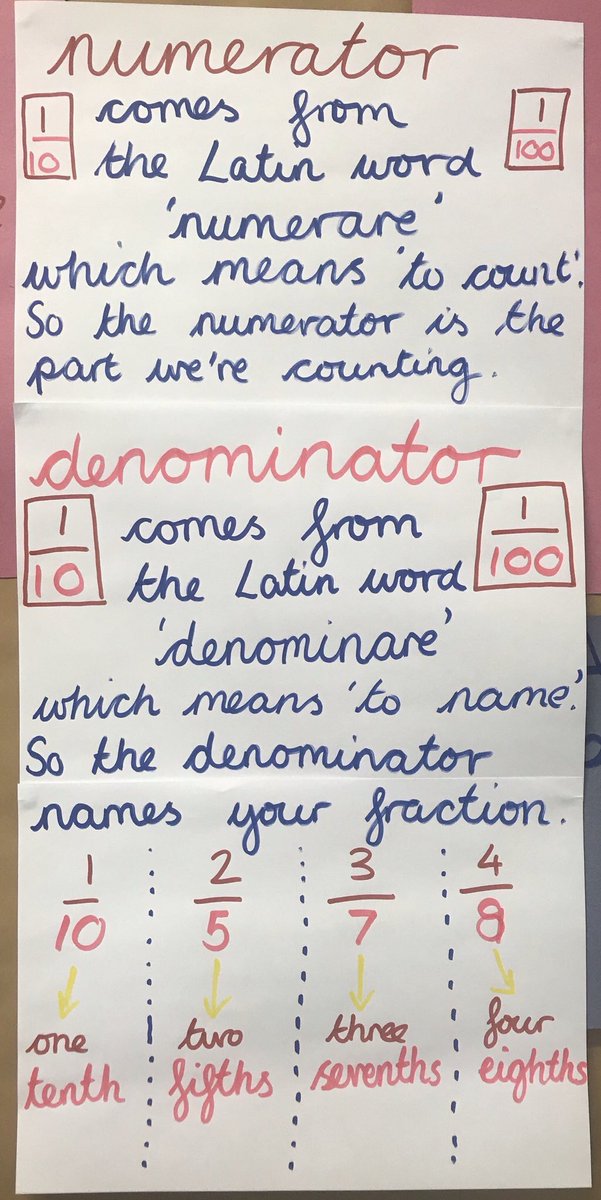 numerator
1/10 comes from 1/100
the Latin word
'numerare'
which means 'to count'.
So the numerator is the
part we're counting.
denominator
1/10 comes from 1/100
the Latin word
'denominare'
which means 'to name'.
So the denominator
names your fraction.
1/10 2/5 3/7 4/8
one two three four
tenth fifths sevenths eighths